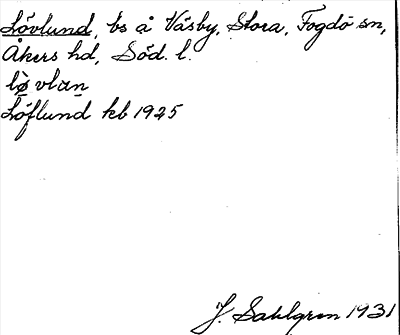 Lövlund, bs å Väsby, Stora, Fogdö sn,
Åkers hd, Söd. l.
lø̀vlan
Löflund kb 1925
J. Sahlgren 1931